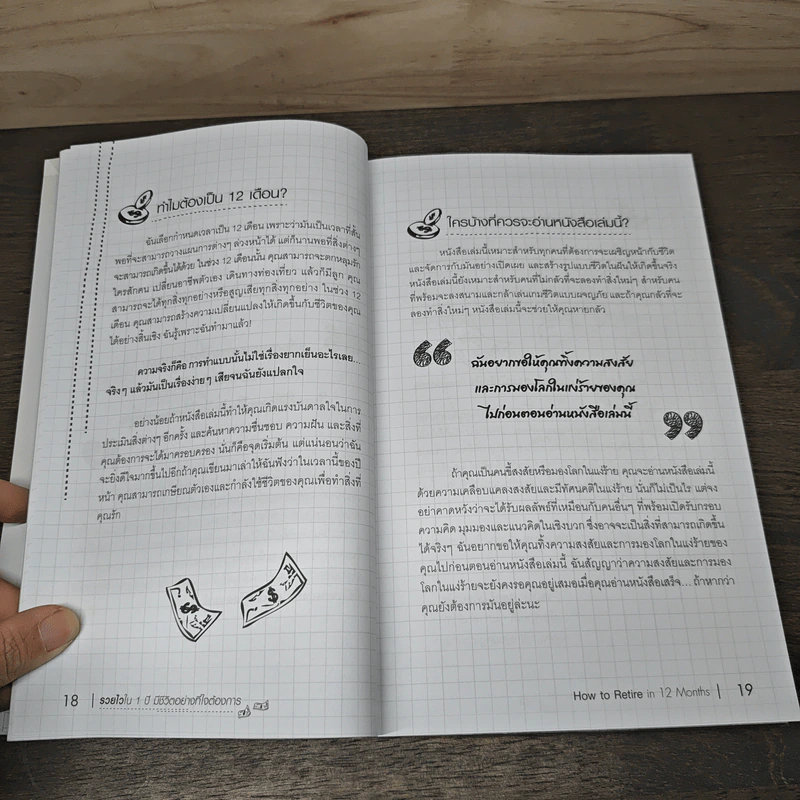 ทำไมต้องเป็น 12 เดือน?
ฉันเลือกกำหนดเวลาเป็น 12 เดือน เพราะว่ามันเป็นเวลาที่สั้น
พอที่จะสามารถวางแผนการต่างๆ ล่วงหน้าได้ แต่ก็นานพอที่สิ่งต่างๆ
จะสามารถเกิดขึ้นได้ด้วย ในช่วง 12 เดือนนั้น คุณสามารถจะตกหลุมรัก
ใครสักคน เปลี่ยนอาชีพตัวเอง เดินทางท่องเที่ยว แล้วก็มีลูก คุณ
สามารถจะได้ทุกสิ่งทุกอย่างหรือสูญเสียทุกสิ่งทุกอย่าง ในช่วง 12
เดือน คุณสามารถสร้างความเปลี่ยนแปลงให้เกิดขึ้นกับชีวิตของคุณ
ได้อย่างสิ้นเชิง ฉันรู้เพราะฉันทำมาแล้ว!
ความจริงก็คือ การทำแบบนั้นไม่ใช่เรื่องยากเย็นอะไรเลย...
จริงๆ แล้วมันเป็นเรื่องง่ายๆ เสียจนฉันยังแปลกใจ
อย่างน้อยถ้าหนังสือเล่มนี้ทำให้คุณเกิดแรงบันดาลใจในการ
ประเมินสิ่งต่างๆ อีกครั้ง และค้นหาความชื่นชอบ ความฝัน และสิ่งที่
คุณต้องการจะได้มาครอบครอง นั่นก็คือจุดเริ่มต้น แต่แน่นอนว่าฉัน
จะยิ่งดีใจมากขึ้นไปอีกถ้าคุณเขียนมาเล่าให้ฉันฟังว่าในเวลานี้ของปี
หน้า คุณสามารถเกษียณตัวเองและกำลังใช้ชีวิตของคุณเพื่อทำสิ่งที่
คุณรัก
18 | รวยไวใน 1 ปี มีชีวิตอย่างที่ใจต้องการ
ใครบ้างที่ควรจะอ่านหนังสือเล่มนี้?
หนังสือเล่มนี้เหมาะสำหรับทุกคนที่ต้องการจะเผชิญหน้ากับชีวิต
และจัดการกับมันอย่างเปิดเผย และสร้างรูปแบบชีวิตในฝันให้เกิดขึ้นจริง
หนังสือเล่มนี้ยังเหมาะสำหรับคนที่ไม่กลัวที่จะลองทำสิ่งใหม่ๆ สำหรับคน
ที่พร้อมจะลงสนามและกล้าเล่นเกมชีวิตแบบผจญภัย และถ้าคุณกลัวที่จะ
ลองทำสิ่งใหม่ๆ หนังสือเล่มนี้จะช่วยให้คุณหายกลัว
“ฉันอยากขอให้คุณทิ้งความสงสัย
และการมองโลกในแง่ร้ายของคุณ
ไปก่อนตอนอ่านหนังสือเล่มนี้”
ถ้าคุณเป็นคนขี้สงสัยหรือมองโลกในแง่ร้าย คุณจะอ่านหนังสือเล่มนี้
ด้วยความเคลือบแคลงสงสัยและมีทัศนคติในแง่ร้าย นั่นก็ไม่เป็นไร แต่จง
อย่าคาดหวังว่าจะได้รับผลลัพธ์ที่เหมือนกับคนอื่นๆ ที่พร้อมเปิดรับกรอบ
ความคิด มุมมองและแนวคิดในเชิงบวก ซึ่งอาจจะเป็นสิ่งที่สามารถเกิดขึ้น
ได้จริงๆ ฉันอยากขอให้คุณทิ้งความสงสัยและการมองโลกในแง่ร้ายของ
คุณไปก่อนตอนอ่านหนังสือเล่มนี้ ฉันสัญญาว่าความสงสัยและการมอง
โลกในแง่ร้ายจะยังคงรอคุณอยู่เสมอเมื่อคุณอ่านหนังสือเสร็จ... ถ้าหากว่า
คุณยังต้องการมันอยู่ล่ะนะ
How to Retire in 12 Months | 19